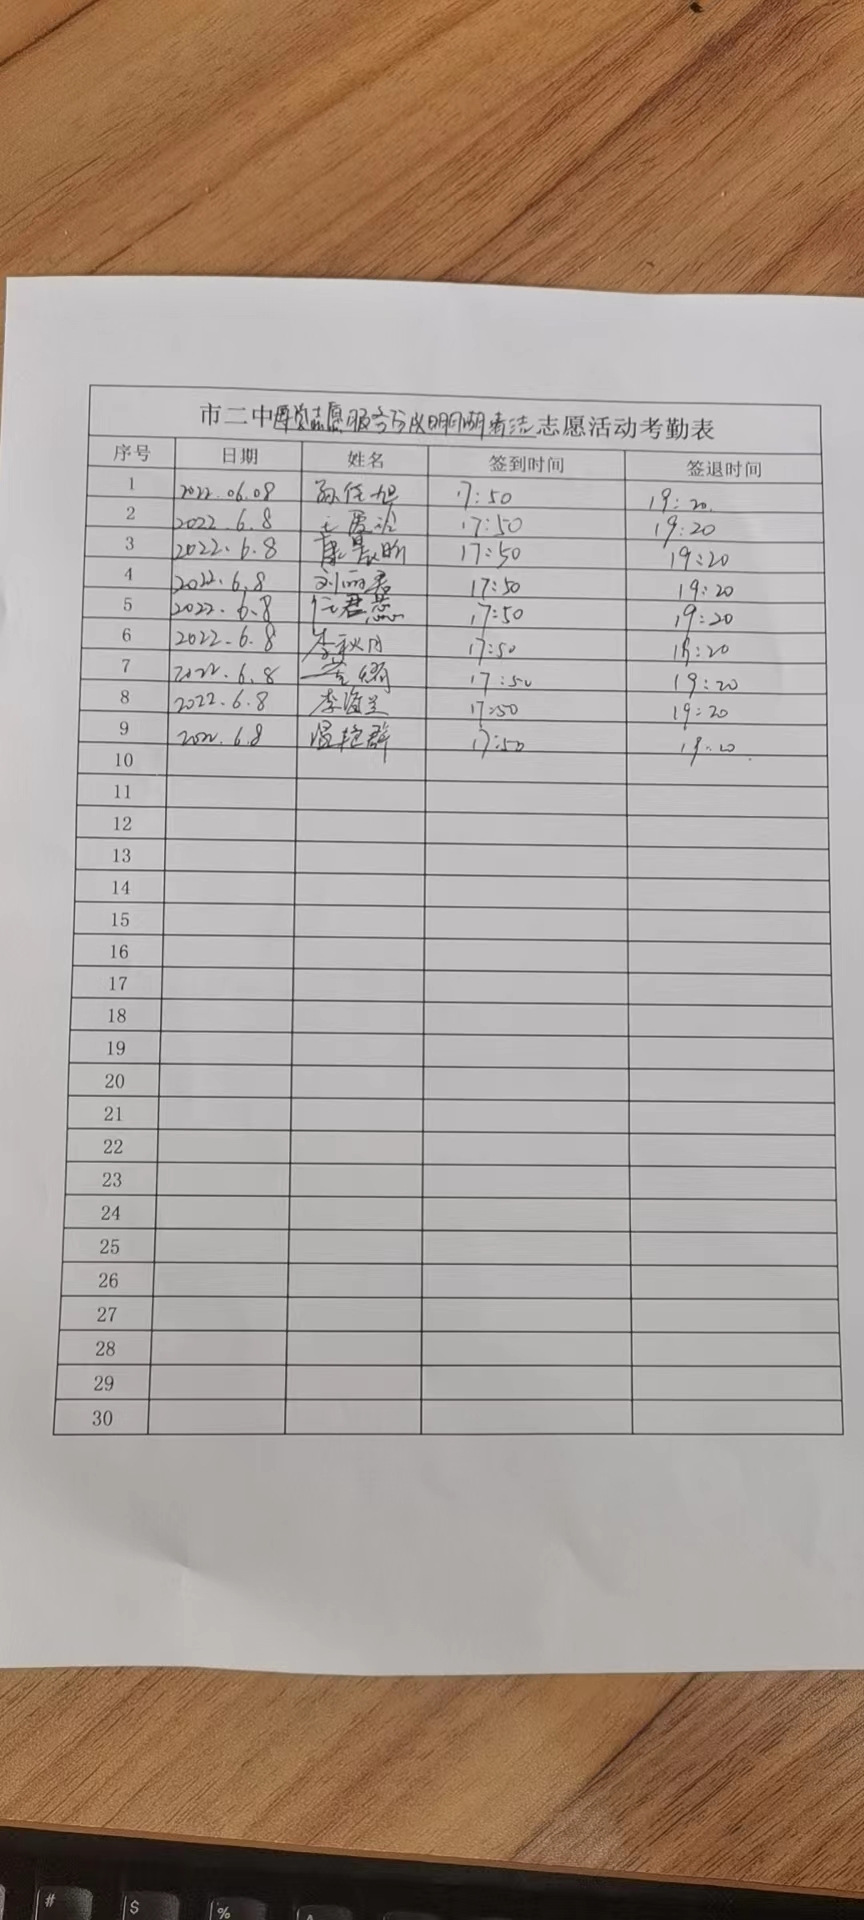 市二中 志愿服务 明湖清洁志愿活动考勤表
序号 日期 姓名 签到时间 签退时间
1 2022.06.08 孙任旭 17:50 19:20
2 2022.6.8 17:50 19:20
3 2022.6.8 康晨昕 17:50 19:20
4 2022.6.8 刘丽君 17:50 19:20
5 2022.6.8 任君蕊 17:50 19:20
6 2022.6.8 李秋月 17:50 19:20
7 2022.6.8 17:50 19:20
8 2022.6.8 李海兰 17:50 19:20
9 2022.6.8 温艳群 17:50 19:20
10
11
12
13
14
15
16
17
18
19
20
21
22
23
24
25
26
27
28
29
30
# $ %